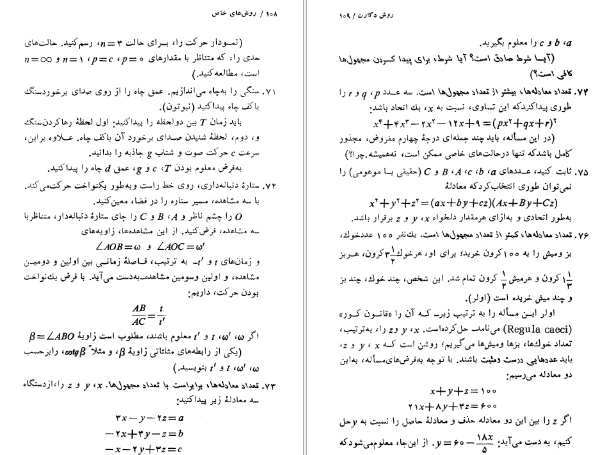 ۱۰۸ / روش‌های خاص
(نمودار حرکت را، برای حالت n=۳، رسم کنید. حالت‌های
حدی را، که متناظر با مقدارهای p=۰، p=c، n=۱ و n=∞
است، مطالعه کنید.)
۷۱. سنگی را به‌چاه می‌اندازیم. عمق چاه را از روی صدای برخورد سنگ
با کف چاه پیدا کنید (نیوتون).
باید زمان T بین دو لحظه را پیدا کنید: اول لحظهٔ رها کردن سنگ
و، دوم، لحظهٔ شنیدن صدای برخورد آن با کف چاه. علاوه بر این،
سرعت c حرکت صوت و شتاب g جاذبه را بدانید.
به‌فرض معلوم بودن T، c و g، عمق d چاه را پیدا کنید.
۷۲. ستارهٔ دنباله‌داری، روی خط راست و به‌طور یکنواخت حرکت می‌کند.
با سه مشاهده، مسیر ستاره را در فضا، معین کنید.
O را چشم ناظر و A، B و C را جای ستارهٔ دنباله‌دار، متناظر با
سه مشاهده، فرض کنید. از این مشاهده‌ها، زاویه‌های
∠AOB=ω و ∠AOC=ω′
و زمان‌های t و t′ به ترتیب، فاصلهٔ زمانی بین اولین و دومین
مشاهده، و اولین وسومین مشاهده به‌دست می‌آید. با فرض یک‌نواخت
بودن حرکت، داریم:
AB/AC = t/t′
اگر ω، ω′، t و t′ معلوم باشند، مطلوب است زاویهٔ β=∠ABO
(یکی از رابطه‌های مثلثاتی زاویهٔ β، و مثلاً cotgβ را، برحسب
ω، ω′، t و t′ بنویسید.)
۷۳. تعداد معادله‌ها، برابر است با تعداد مجهول‌ها. x، y و z را، از دستگاه
سه معادلهٔ زیر پیدا کنید:
۳x − y − ۲z = a
− ۲x + ۳y − z = b
− x − ۲y + ۳z = c
روش دکارت / ۱۰۹
a، b و c را معلوم بگیرید.
(آیا شرط صادق است؟ آیا شرط، برای پیدا کردن مجهول‌ها
کافی است؟)
۷۴. تعداد معادله‌ها، بیشتر از تعداد مجهول‌ها است. سه عدد p، q و r را
طوری پیدا کنید که این تساوی، نسبت به x، یک اتحاد باشد:
x⁴+۴x³−۲x²−۱۲x+۹=(px²+qx+r)²
(در این مسأله، باید چند جمله‌ای درجهٔ چهارم مفروض، مجذور
کامل باشد که تنها در حالت‌های خاص ممکن است، نه همیشه. چرا؟)
۷۵. ثابت کنید، عددهای a، b، c، A، B و C (حقیقی یا موهومی) را
نمی‌توان طوری انتخاب کرد که معادلهٔ
x²+y²+z²=(ax+by+cz)(Ax+By+Cz)
به‌طور اتحادی و به‌ازای هر مقدار دلخواه x، y و z برقرار باشد.
۷۶. تعداد معادله‌ها، کمتر از تعداد مجهول‌ها است. یک‌نفر ۱۰۰ عدد خوک،
بز ومیش را به ۱۰۰ کرون خرید؛ برای او، هر خوک ۳ ۱/۲ کرون، هر بز
۱ ۱/۳ کرون و هر میش ۱/۲ کرون تمام شد. این شخص، چند خوک، چند بز
و چند میش خریده است (اولر).
اولر این مسأله را به ترتیب زیر که آن را «قانون کور»
(Regula caeci) می‌نامد، حل کرده‌است. x، y و z را، به‌ترتیب،
تعداد خوک‌ها، بزها ومیش‌ها می‌گیریم؛ روشن است که x، y و z،
باید عددهایی درست ومثبت باشند. با توجه به‌فرض‌های‌مسأله، به‌این
دو معادله می‌رسیم:
x+y+z=۱۰۰
۲۱x+۸y+۳z=۶۰۰
اگر z را بین این دو معادله حذف و معادلهٔ حاصل را نسبت به y حل
کنیم، به دست می‌آید: y=۶۰−۱۸x/۵. از این‌جا، معلوم می‌شود که